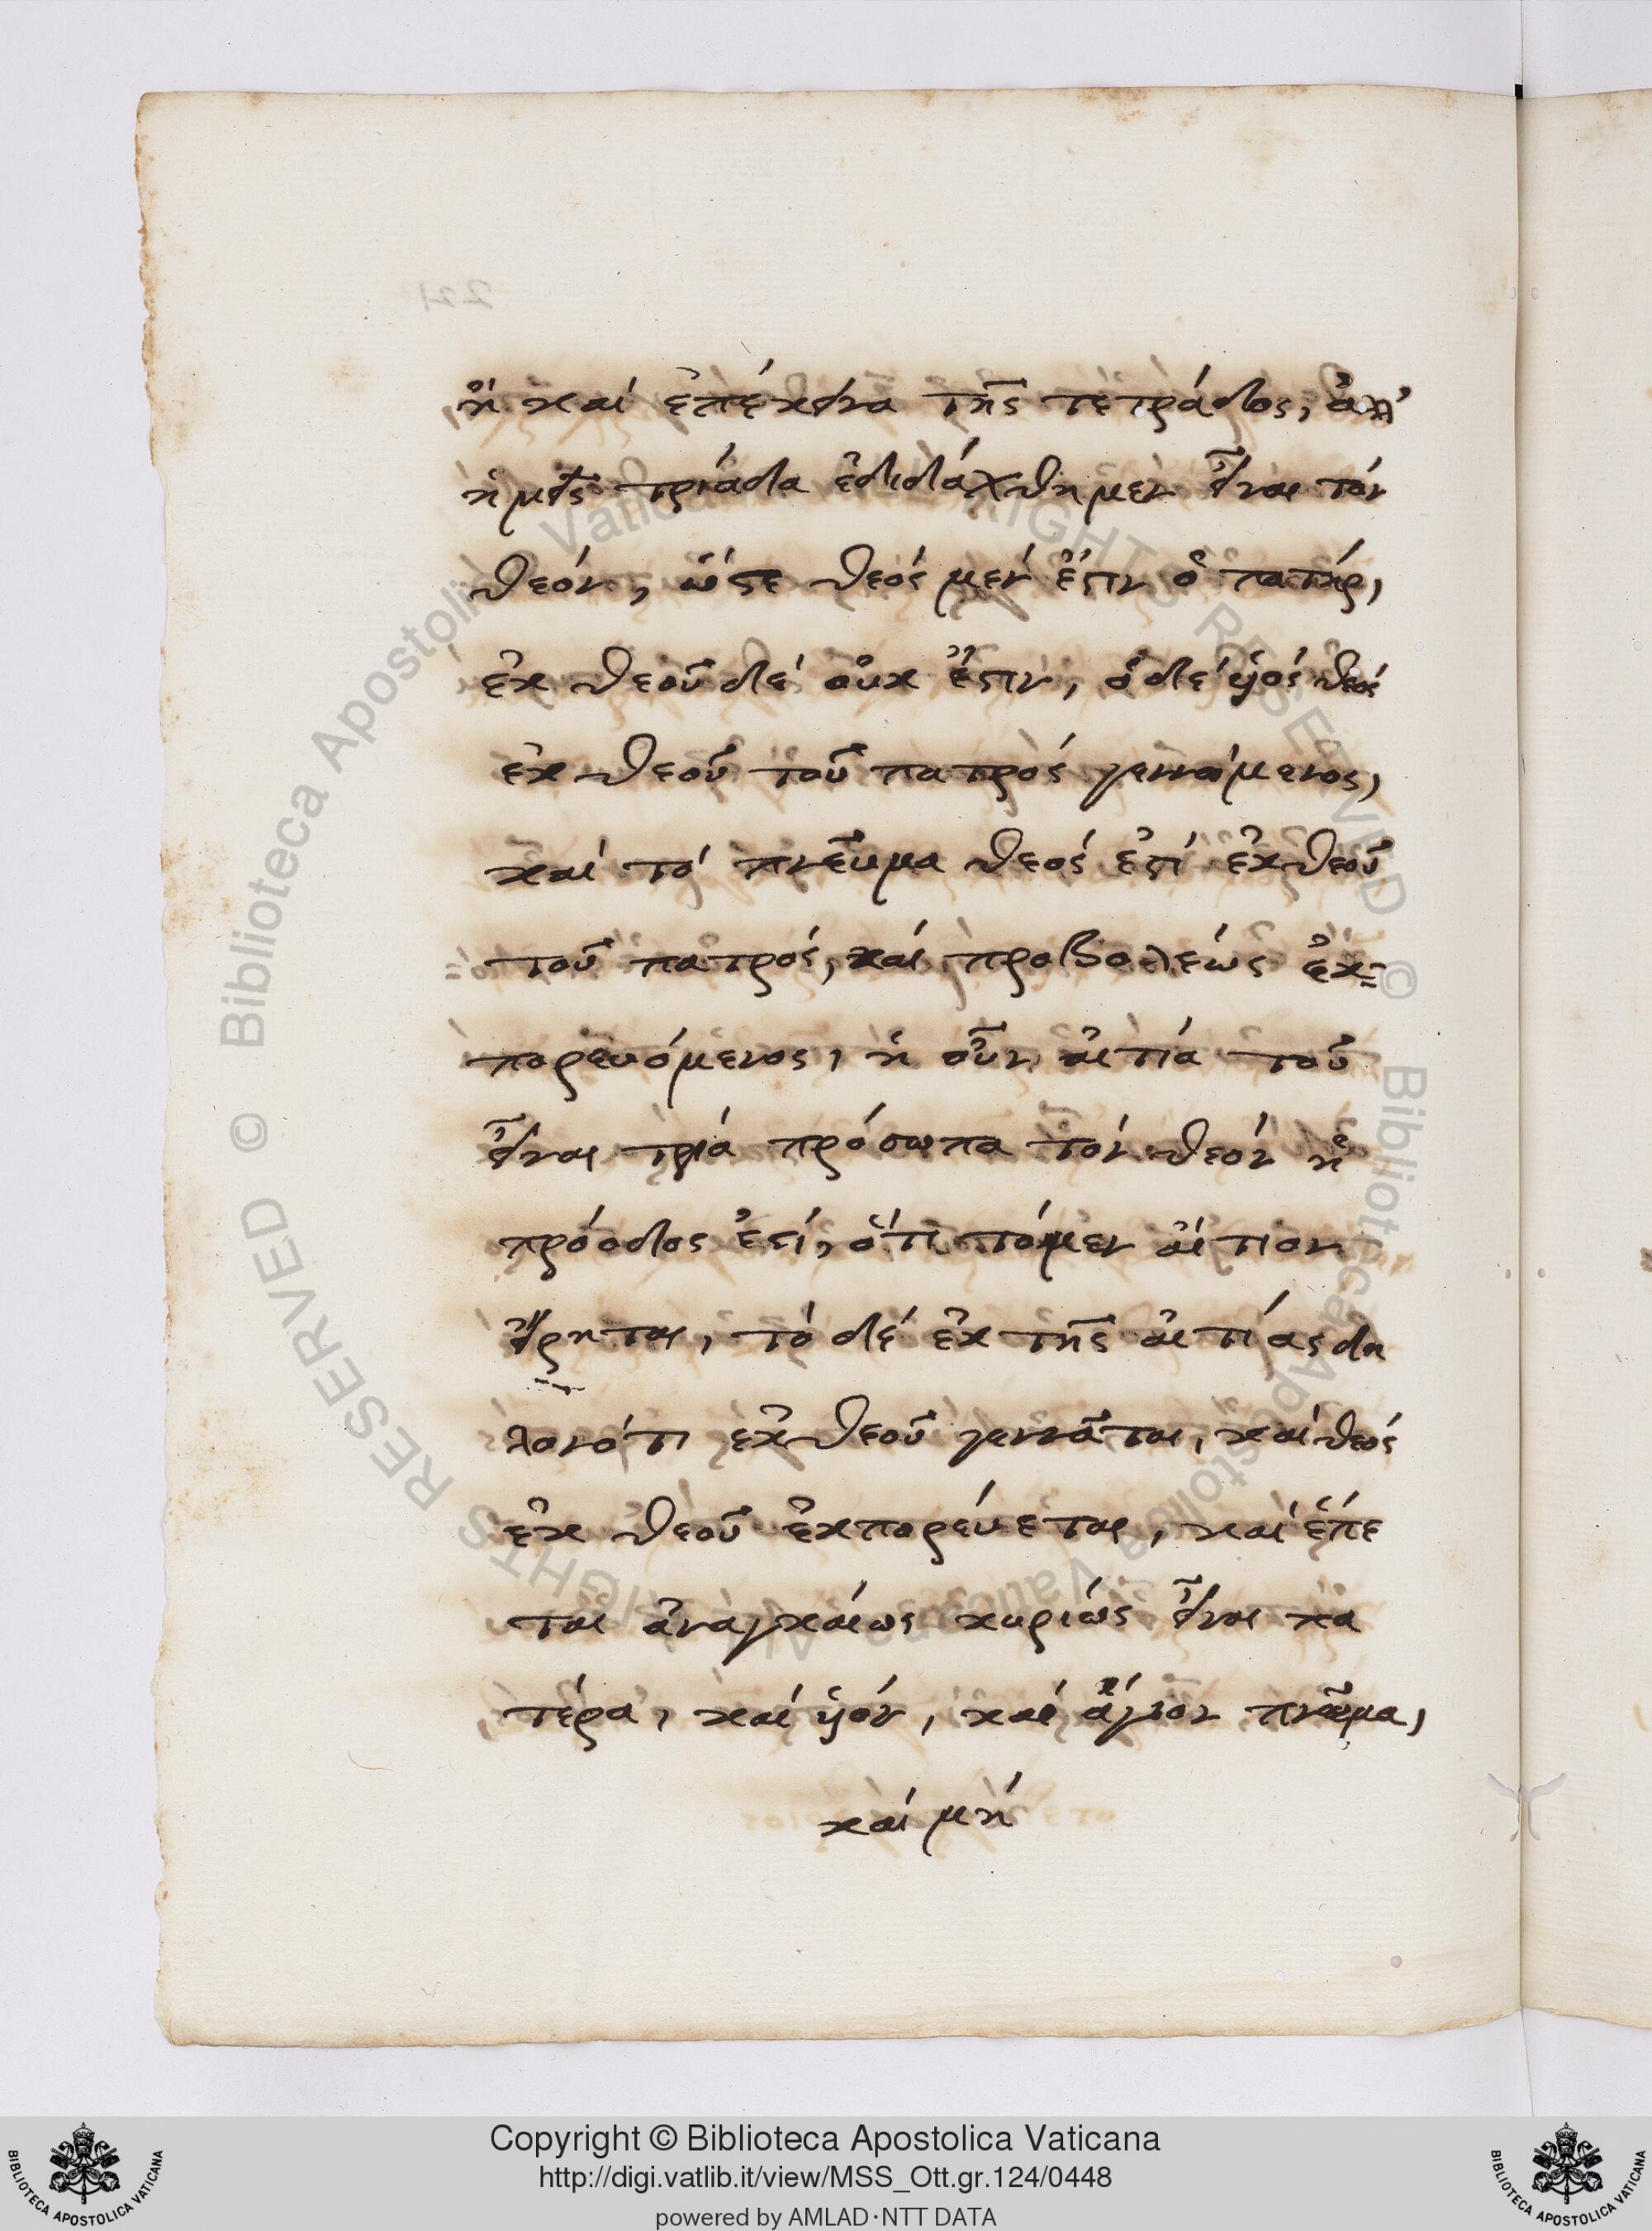 ἢ καί ἐπέκεινα τῆς τετράδος, ἀλλ'
ἡμεῖς τριάδα ἐδιδάχθημεν εἶναι τόν
θεόν, ὥστε θεός μέν ἔστιν ὁ πατήρ,
ἐκ θεοῦ δέ οὐκ ἔστιν, ὁ δέ ὑιός θεός
ἐκ θεοῦ τοῦ πατρός γεννώμενος,
καί τό πνεῦμα θεός ἐστί ἐκ θεοῦ
τοῦ πατρός, καί προβολέως ἐκ=
πορευόμενος, ἡ οὖν αἰτία τοῦ
εἶναι τρία πρόσωπα τόν θεόν ἡ
πρόοδος ἐστί, ὅτι τό μέν αἴτιον
εἴρηται, τό δέ ἐκ τῆς αἰτίας δη
λονότι ἐκ θεοῦ γεννᾶται, καί θεός
ἐκ θεοῦ ἐκπορέυεται, καί ἕπε
ται ἀναγκάιως κυρίως εἶναι πα
τέρα, καί ὑιόν, καί ἅγιον πνεῦμα,
καί μή
221
Copyright © Biblioteca Apostolica Vaticana
http://digi.vatlib.it/view/MSS_Ott.gr.124/0448
powered by AMLAD·NTT DATA
BIBLIOTECA APOSTOLICA VATICANA
BIBLIOTECA APOSTOLICA VATICANA